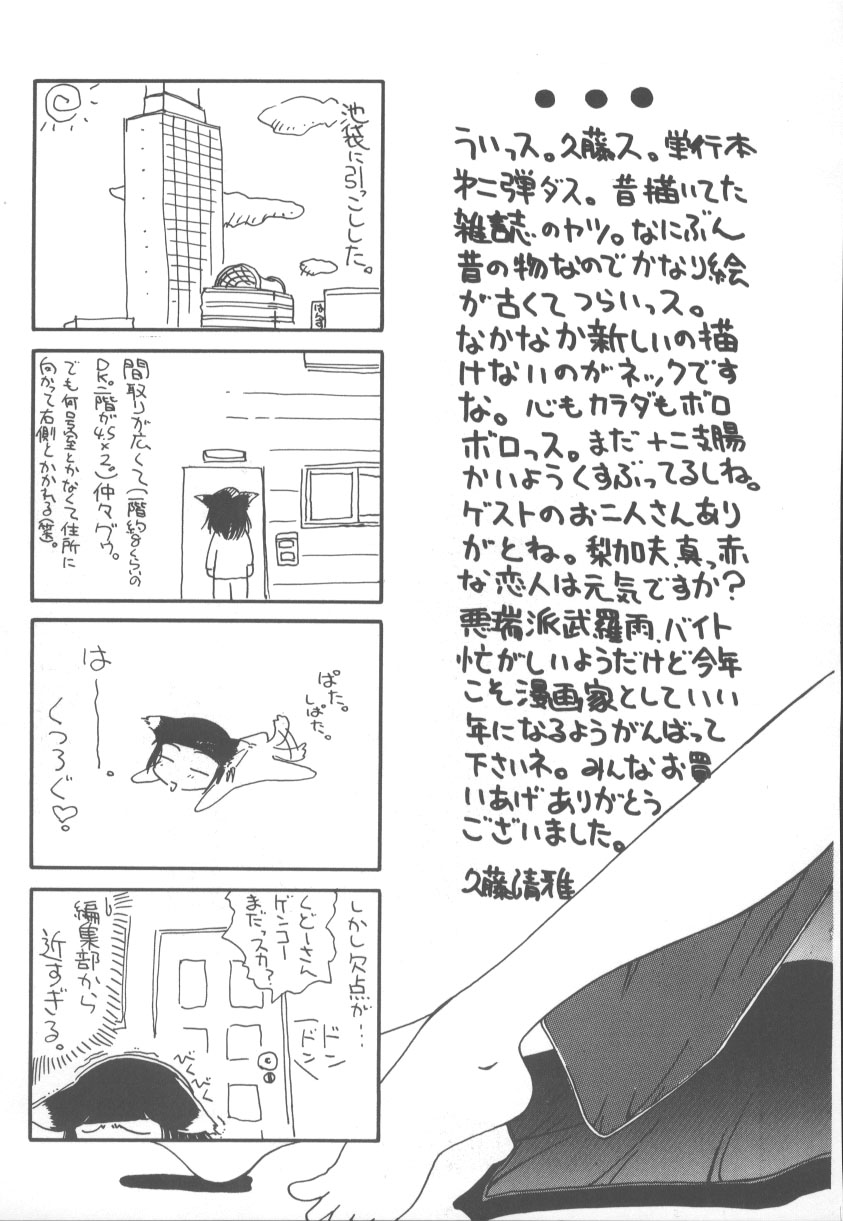 ・・・
ういっス。久藤ス。単行本
第二弾ダス。昔描いてた
雑誌のヤツ。なにぶん
昔の物なのでかなり絵
が古くてつらいっス。
なかなか新しいの描
けないのがネックです
な。心もカラダもボロ
ボロっス。まだ十二支腸
かいようくすぶってるしね。
ゲストのお二人さんあり
がとね。梨加夫、真っ赤
な恋人は元気ですか?
悪瑞派武羅雨、バイト
忙がしいようだけど今年
こそ漫画家としていい
年になるようがんばって
下さいネ。みんなお買
いあげありがとう
ございました。
久藤清雅
池袋に引っこしした。
はんず
間取りが広くて(一階約8くらいの
DK。二階が4.5×2。)仲々グゥ。
でも何号室とかなくて住所に
向かって右側とかかれる(笑)。
ぱた。
しぱた。
はーー。
くつろぐ♡。
しかし欠点が…
くどーさん
ゲンコー
まだっスカ?
ドン
ドン
びくびく
編集部から
近すぎる。